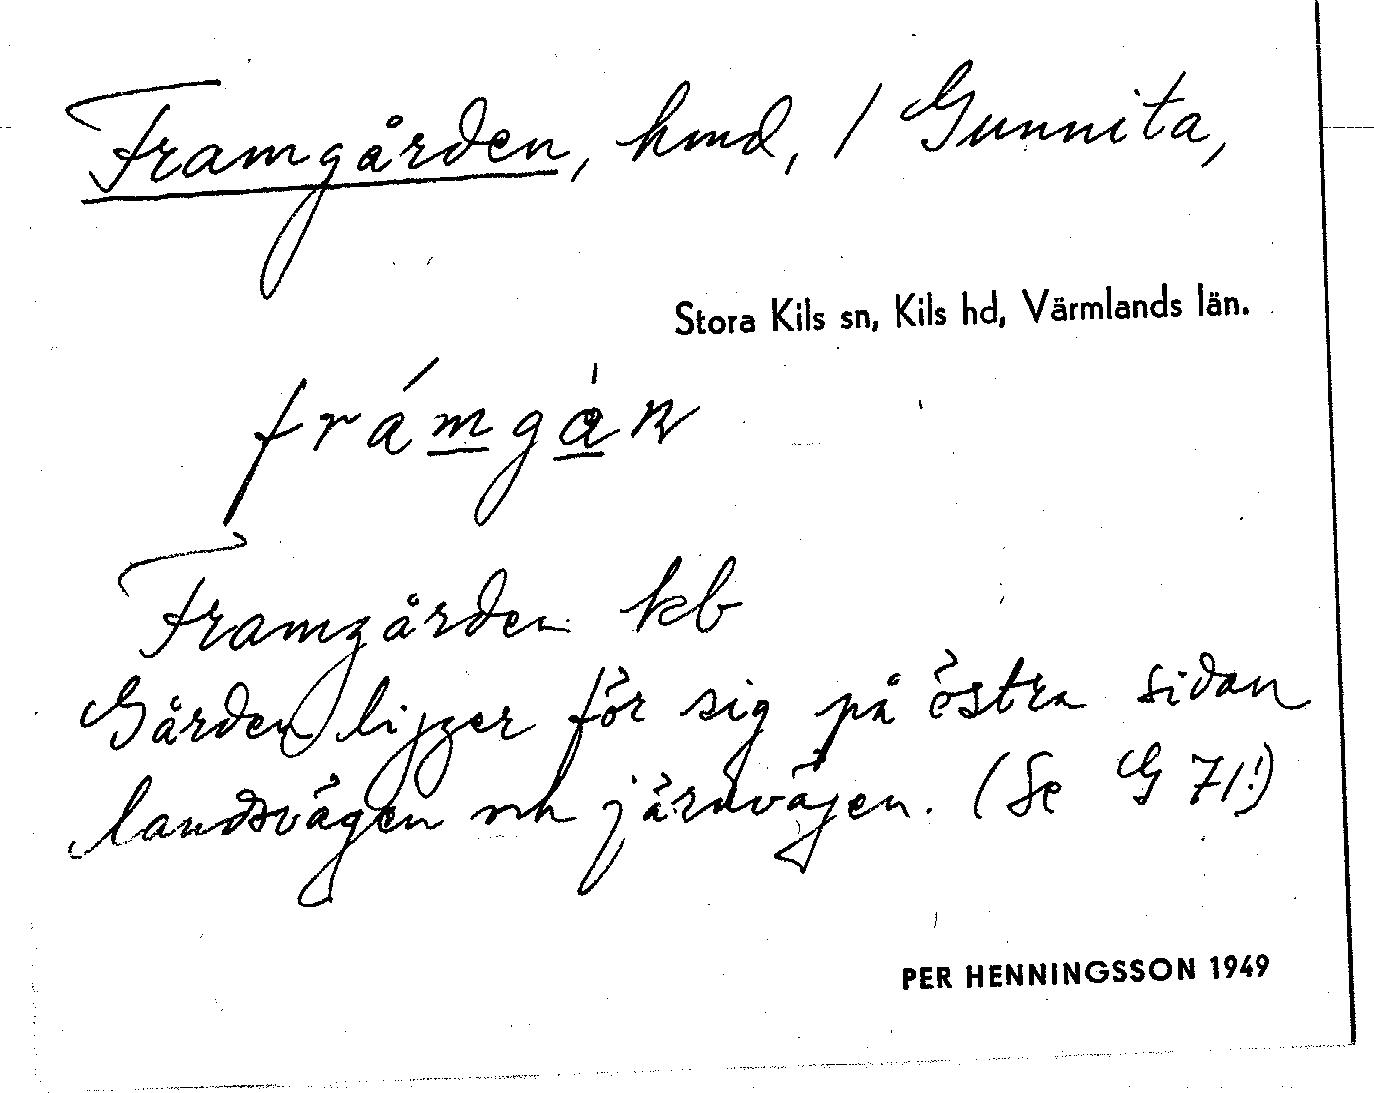 Framgården, hmd, / Gunnita,
Stora Kils sn, Kils hd, Värmlands län.
Framgården kb
Gården ligger för sig på östra sidan
landsvägen och järnvägen. (Se G 71!)
PER HENNINGSSON 1949